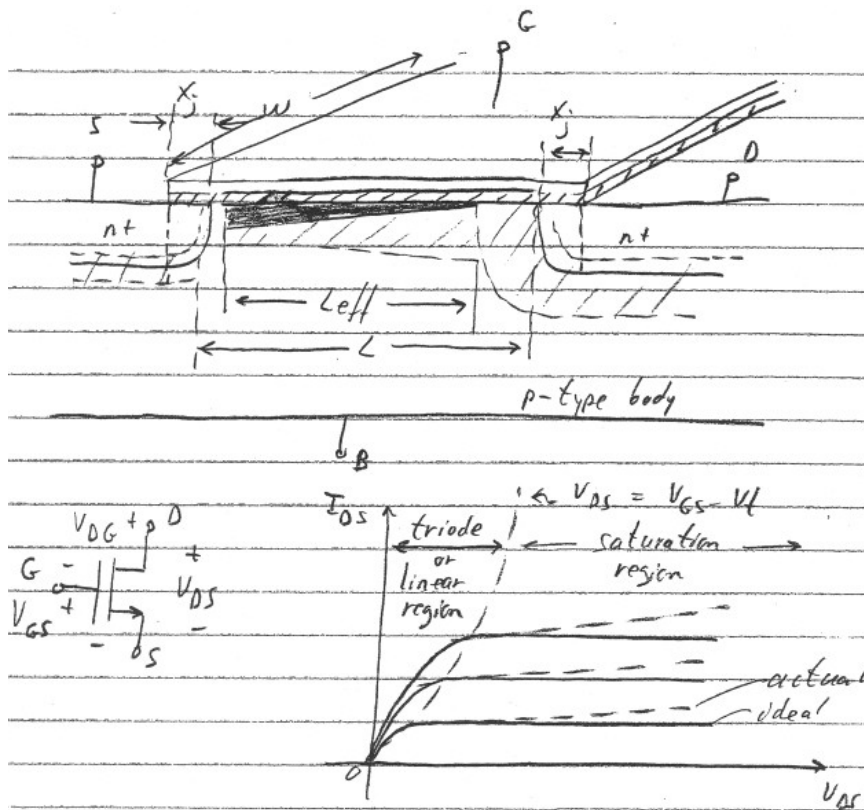 G
Xj
W
Xj
S
D
n+
n+
Leff
L
p-type body
B
IDS
VDS = VGS - Vt
triode
or
linear
region
saturation
region
VDG + D
G
-
+
+
VGS
VDS
-
-
S
actual
ideal
0
VDS